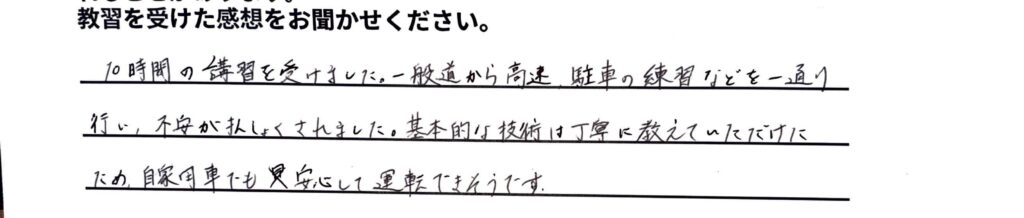 教習を受けた感想をお聞かせください。
10時間の講習を受けました。一般道から高速、駐車の練習などを一通り
行い、不安が払しょくされました。基本的な技術は丁寧に教えていただけた
ため、自家用車でも安心して運転できそうです。